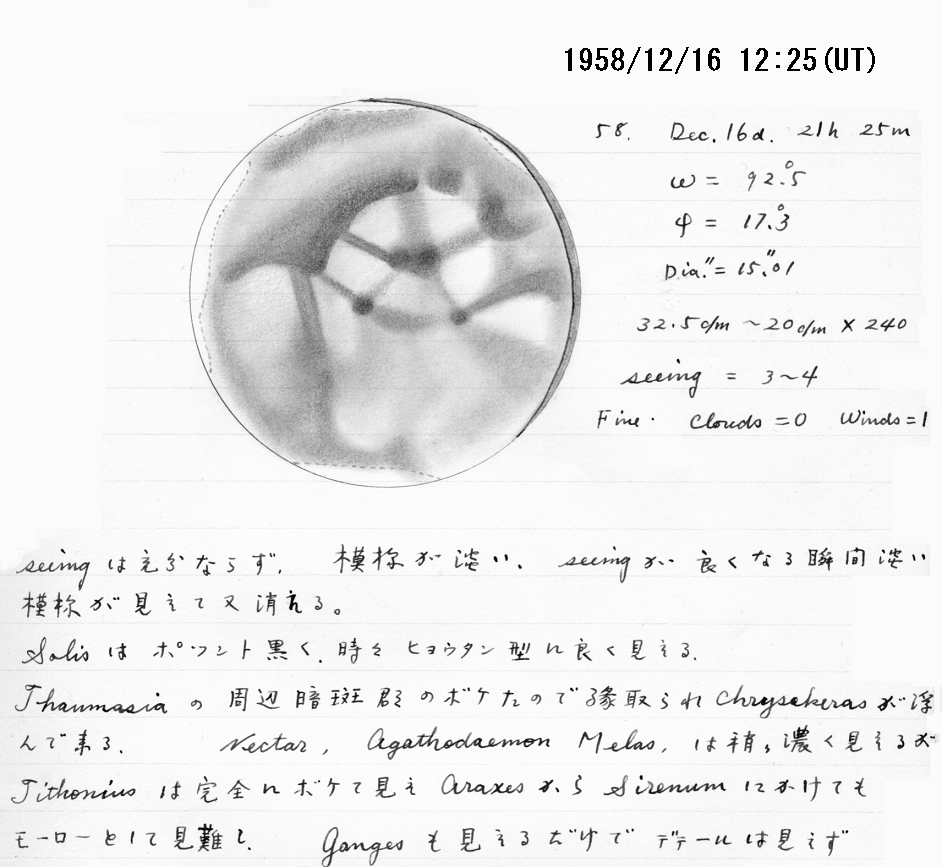 1958/12/16 12:25(UT)
58. Dec. 16d. 21h 25m
ω = 92.°5
φ = 17.°3
Dia." = 15."01
32.5c/m ~20c/m × 240
seeing = 3~4
Fine. Clouds =0 Winds=1
seeingは充分ならず. 模様が淡い. seeingが良くなる瞬間淡い
模様が見えて又消える。
Solisはポツント黒く、時々ヒョウタン型に良く見える.
Thaumasiaの周辺暗斑群のボケたので縁取られChrysokerasが浮
んで来る. Nectar, Agathodaemon Melas, は稍々濃く見えるが
Tithoniusは完全にボケて見えAraxesからSirenumにかけても
モーローとして見難し. Gangesも見えるだけでデテールは見えず